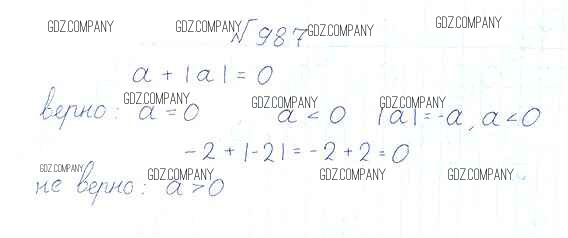 GDZ.COMPANY GDZ.COMPANY GDZ.COMPANY GDZ.COMPANY
№ 987
a + |a| = 0
GDZ.COMPANY GDZ.COMPANY GDZ.COMPANY
верно: a = 0 a < 0 |a| = -a, a < 0
-2 + |-2| = -2 + 2 = 0
GDZ.COMPANY GDZ.COMPANY GDZ.COMPANY GDZ.COMPANY
не верно: a > 0